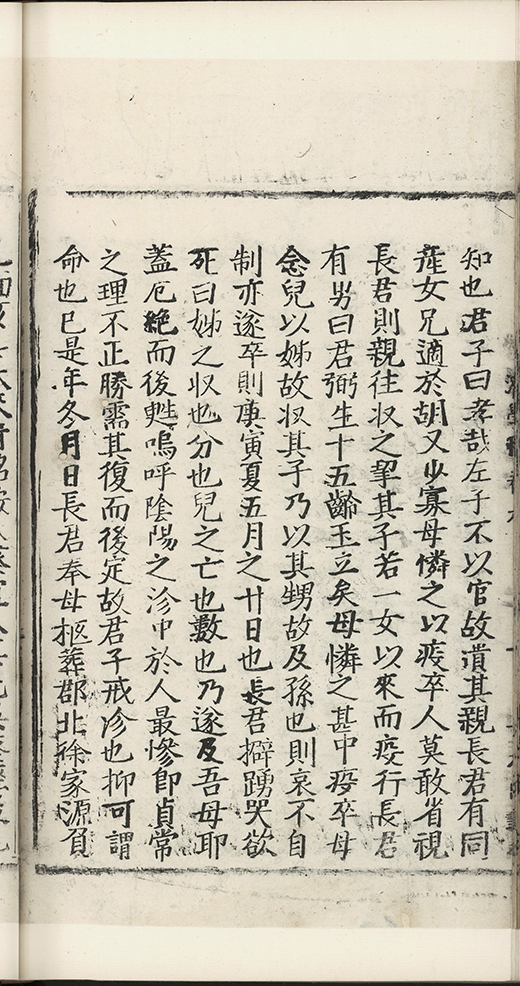 知也君子曰孝哉左子不以官故遺其親長君有同
產女兄適於胡又少寡母憐之以疫卒人莫敢省視
長君則親往収之挈其子若一女以來而疫行長君
有男曰君弼生十五齡玉立矣母憐之甚中疫卒母
念兒以姊故収其子乃以其甥故及孫也則哀不自
制亦遂卒則庚寅夏五月之廿日也長君擗踴哭欲
死曰姊之収也分也兒之亡也數也乃遂及吾母耶
蓋戹絶而後甦嗚呼陰陽之沴中於人最慘卽貞常
之理不正勝需其復而後定故君子戒沴也抑可謂
命也已是年冬月日長君奉母柩葬郡北徐家源負